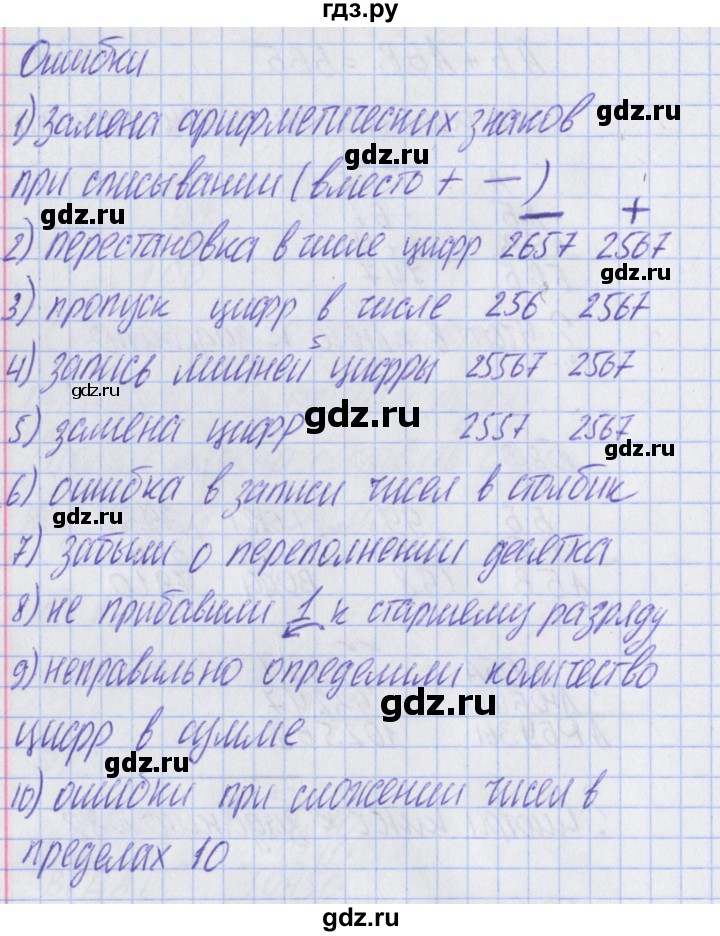 гдз.ру
Ошибки
1) замена арифметических знаков
gdz.ru
gdz.ru
при списывании (вместо + —)
gdz.ru
— +
2) перестановка в числе цифр 2657 2567
gdz.ru
3) пропуск цифр в числе 256 2567
5
4) запись лишней цифры 25567 2567
gdz.ru
gdz.ru
5) замена цифр 2557 2567
gdz.ru
6) ошибка в записи чисел в столбик
gdz.ru
7) забыли о переполнении десятка
8) не прибавили 1 к старшему разряду
gdz.ru
9) неправильно определили количество
gdz.ru
цифр в сумме
gdz.ru
10) ошибки при сложении чисел в
пределах 10
gdz.ru